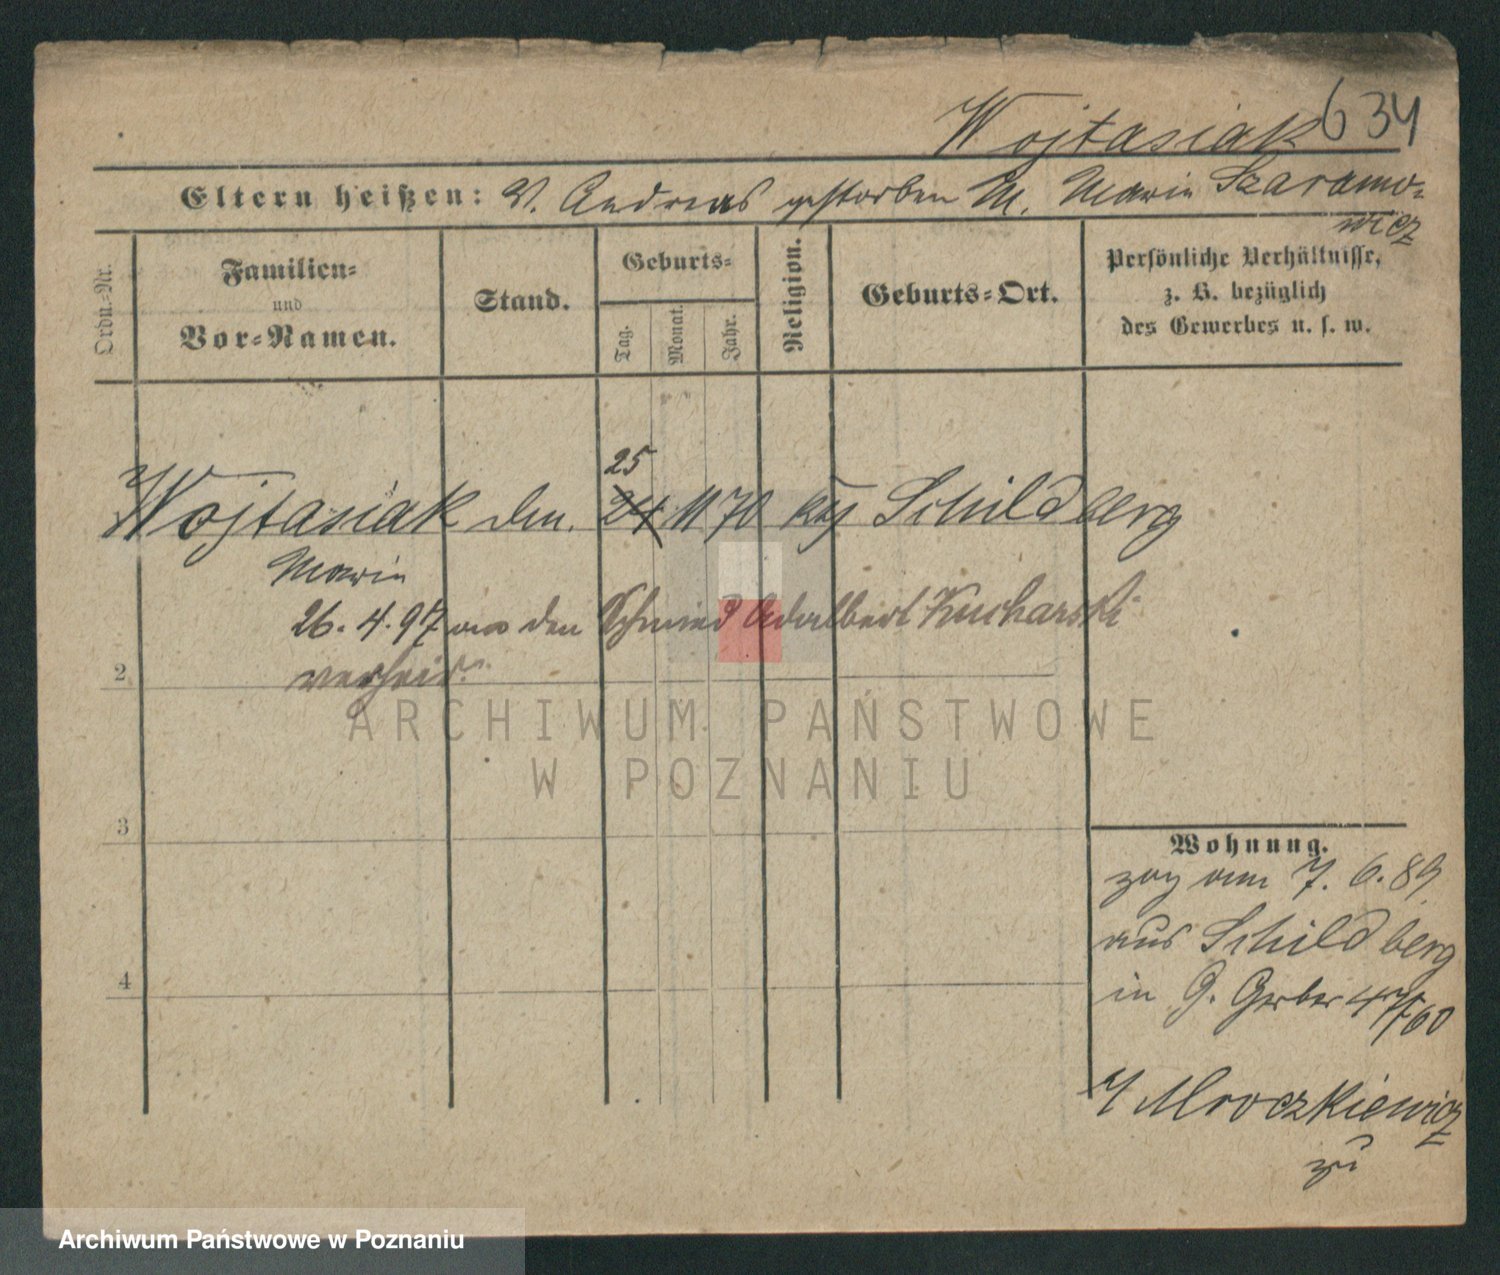 Wojtasiak 634
Eltern heißen: V. Andreas gestorben M. Marie Szaramo=
wicz
Ordn.-Nr.
Familien=
und
Vor=Namen.
Stand.
Geburts=
Tag.
Monat.
Jahr.
Religion.
Geburts=Ort.
Persönliche Verhältnisse,
z. B. bezüglich
des Gewerbes u. s. w.
25
Wojtasiak den. 24 11 70 Schildberg
Marie
26. 4. 97 an den Schmied Adalbert Kucharski
verheir.
2
3
4
Wohnung.
zog am 7. 6. 89
aus Schildberg
in G. Gerber 47/60
Mroczkiewicz
zu
ARCHIWUM PAŃSTWOWE
W POZNANIU
Archiwum Państwowe w Poznaniu